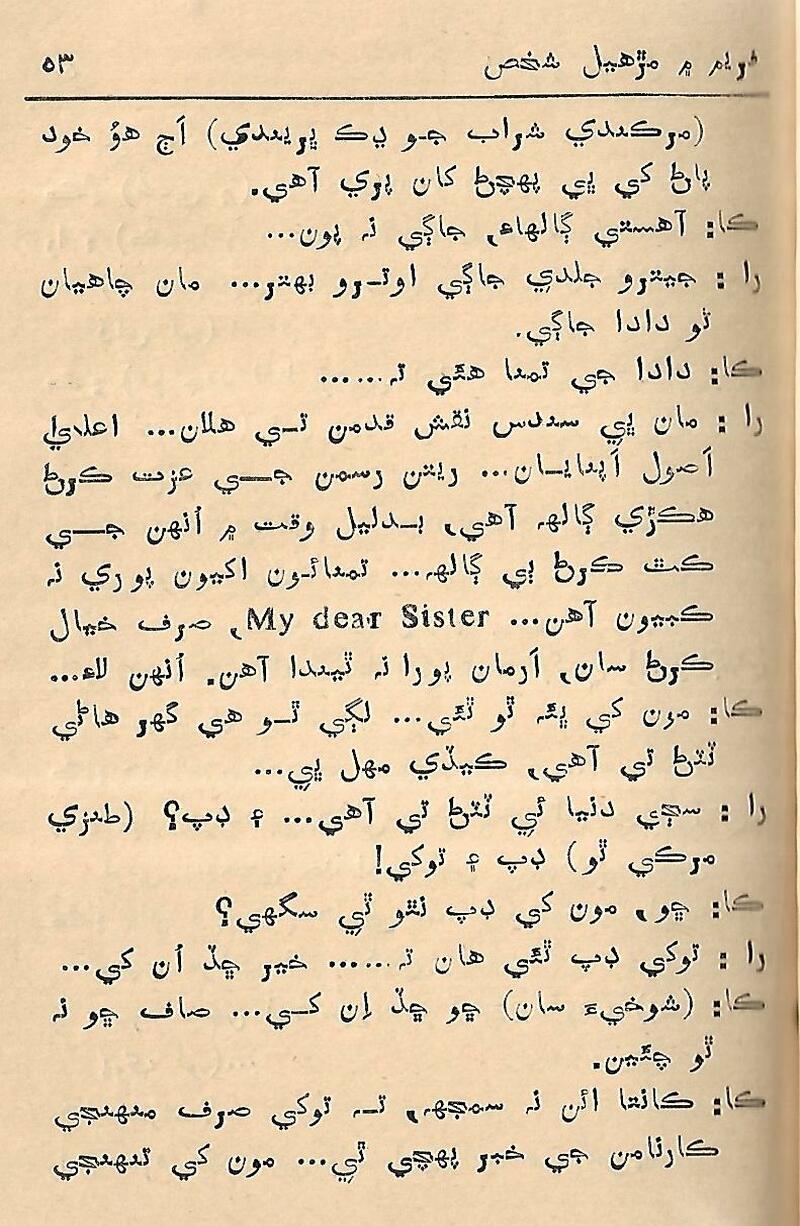 فريم ۾ مڙهيل شخص ۵۳
(مرڪندي شراب جو ڍڪ ڀريندي) اَڄ هوُ خود
پاڻ کي ٻي پهچڻ کان پري آهي.
ڪا: آهستي ڳالهاءِ، جاڳي نہ پون...
را : جيترو جلدي جاڳي اوترو بهتر... مان چاهيان
ٿو دادا جاڳي.
ڪا: دادا جي تمنا هئي تہ......
را : مان ٻي سندس نقش قدمن تي هلان... اعليٰ
اَصول اَپنايان... ريتن رسمن جي عزت ڪرڻ
هڪڙي ڳالهہ آهي، بدليل وقت ۾ اُنهن جي
ڪٿ ڪرڻ ٻي ڳالهہ... تمنائون اکيون پوري نہ
ڪبيون آهن... My dear Sister، صرف خيال
ڪرڻ سان، اَرمان پورا نہ ٿيندا آهن. اُنهن لاءِ...
ڪا: مون کي ڀئہ ٿو ٿئي... لڳي ٿو هي گهر هاڻي
ٽٽڻ تي آهي، ڪيڏي مهل ڀي...
را : سڄي دنيا ئي ٽٽڻ تي آهي... ۽ ڊپ؟ (طنزي
مرڪي ٿو) ڊپ ۽ توکي!
ڪا: ڇو، مون کي ڊپ نٿو ٿي سگهي؟
را : توکي ڊپ ٿئي هان تہ...... خير ڇڏ اُن کي...
ڪا: (شوخيءَ سان) ڇو ڇڏ اِن کي... صاف ڇو نہ
ٿو چئين.
ڪا: ڪانتا ائن نہ سمجهہ، تہ توکي صرف منهنجي
ڪارنامن جي خبر پهچي ٿي... مون کي تنهنجي